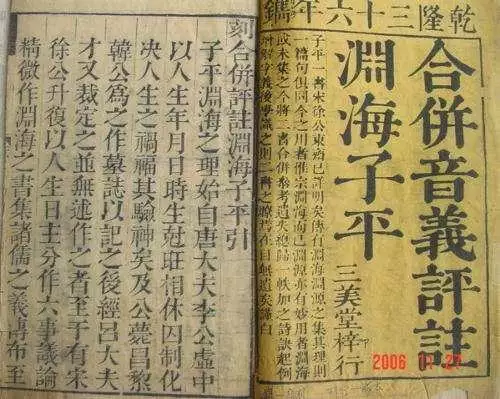 乾隆三十六年鐫
合併音義評註
淵海子平
三美堂梓行
子平一書宋徐公東齋已詳明矣唐有淵海淵源之集其理則
一篇句俱同今之用者惟宗淵海而已淵源亦有妙用者淵海
或未集之今將二書合併參考遺失總歸一帙加之詩訣起例
解字義後學識之則二書之瞭焉在目無遺矣謹白
刻合併評註淵海子平引
子平淵海之理始自唐大夫李公虛中
以人生年月日時生尅旺相休囚制化
決人生之禍福其驗神矣及公薨昌黎
韓公為之作墓誌以記之後經呂大夫
才又裁定之並無述作之者至于有宋
徐公升復以人生日主分作六事議論
精微作淵海之書集諸儒之義傳布至
2006 11 27